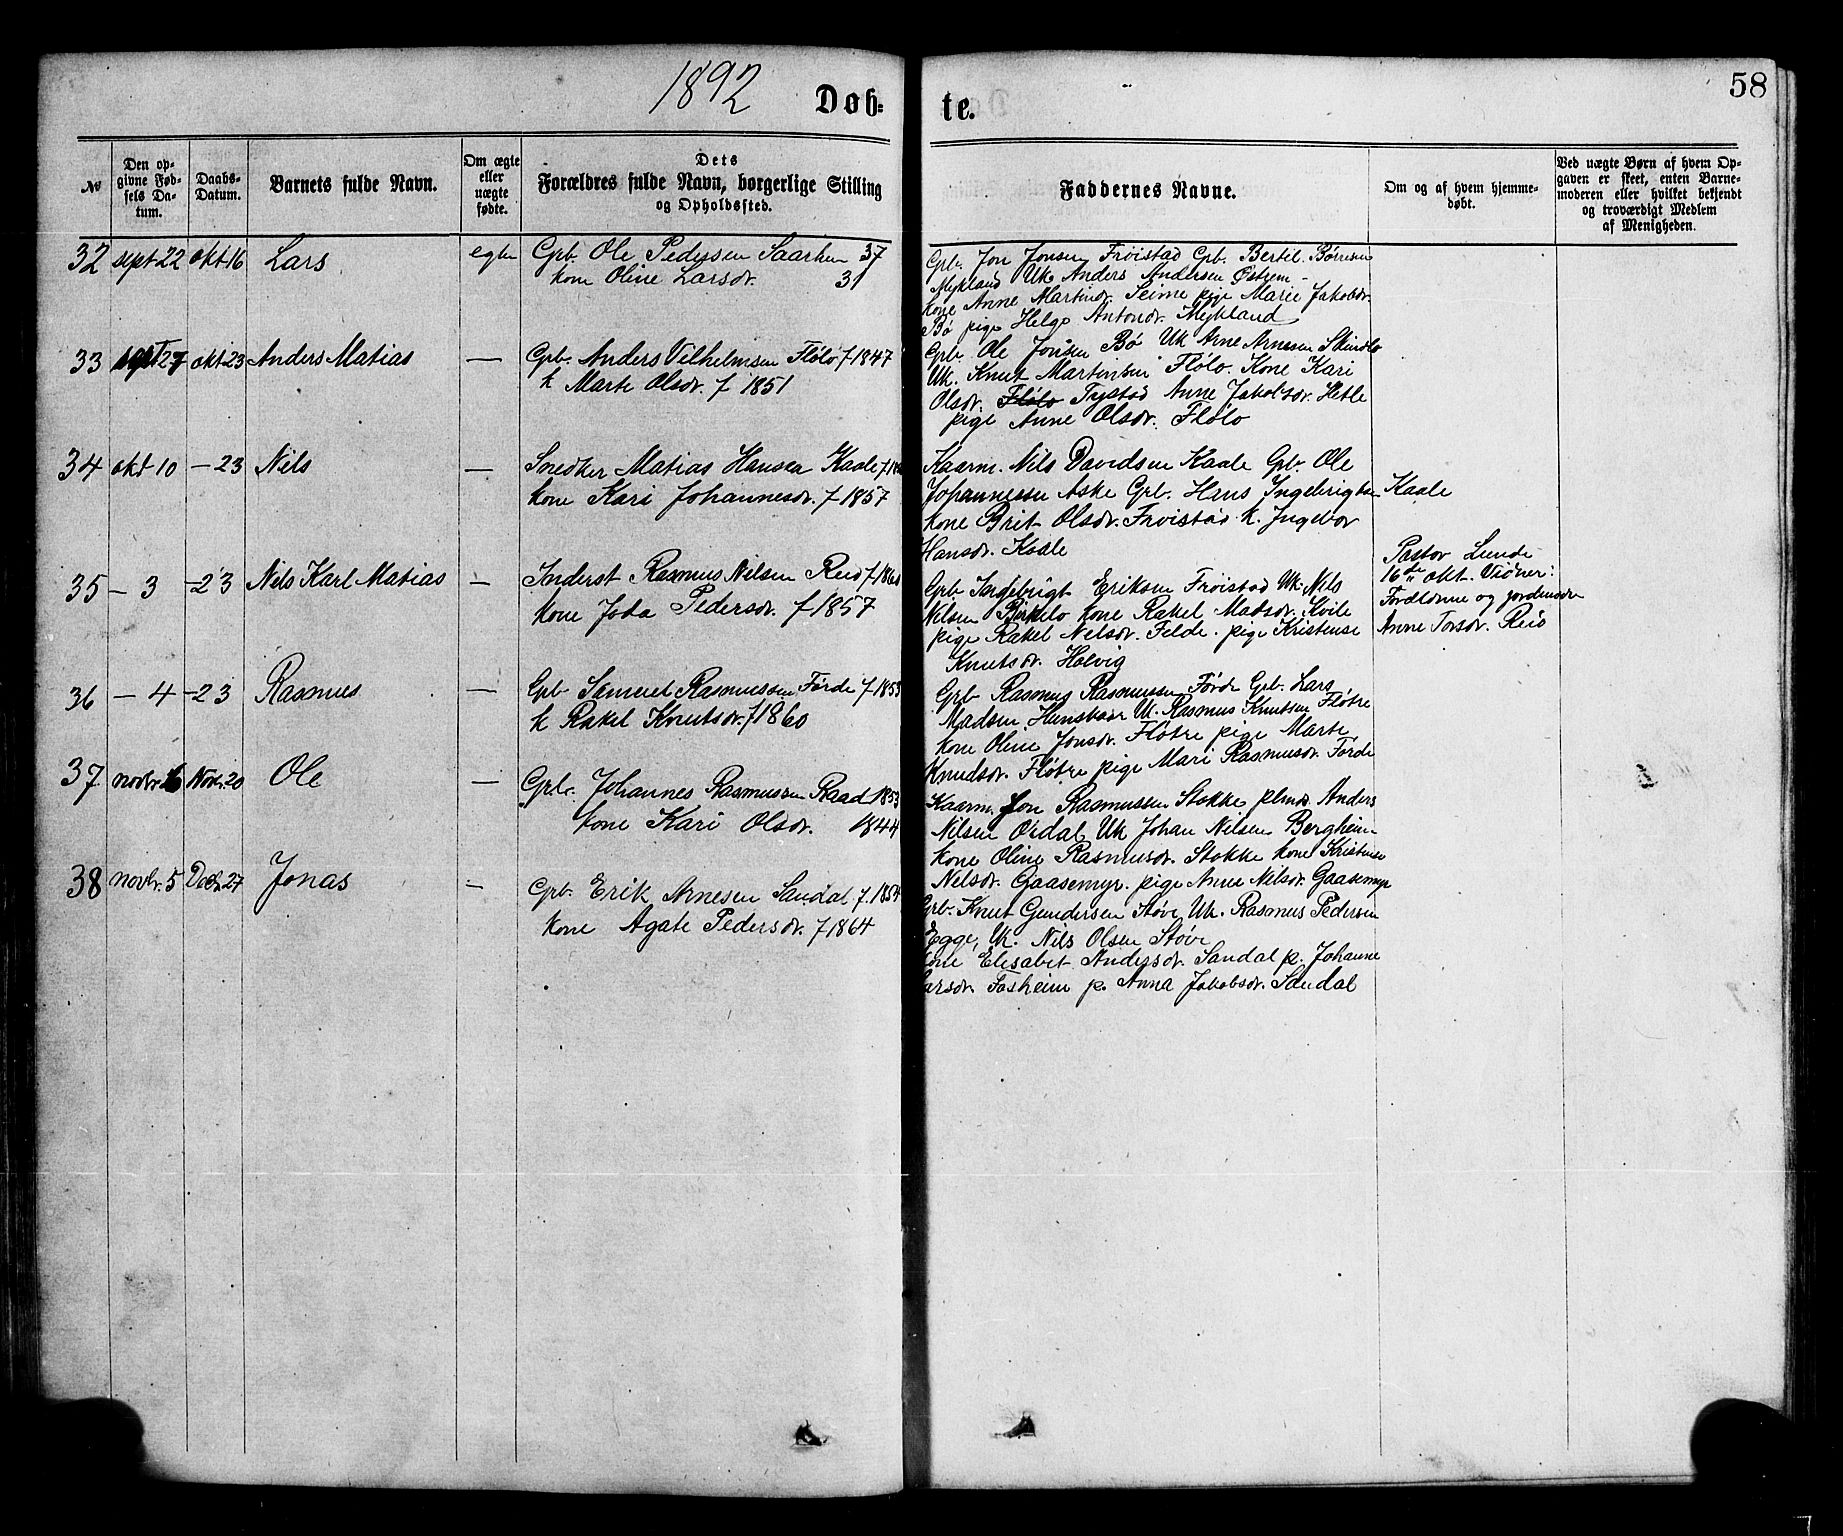 1892
Døb-
te.
58
№
Den opgivne Fødsels Datum.
Daabs-Datum.
Barnets fulde Navn.
Om ægte eller uægte fødte.
Dets
Forældres fulde Navn, borgerlige Stilling
og Opholdssted.
Faddernes Navne.
Om og af hvem hjemmedøbt.
Ved uægte Børn af hvem Opgaven er skeet, enten Barnemoderen eller hvilket bekjendt og troværdigt Medlem af Menigheden.
32 sept 22 okt 16 Lars egte Gpb. Ole Pedersen Saarheim 37
kone Oline Larsdr. 31
Gpb. Jon Jonsen Frøistad Gpb. Bertil Børresen
Mykland Uk Anders Andersen Østrem -
kone Anne Martinidr. Seime pige Marie Jakobdr.
Bø pige Helge Antondr. Mykland
33 sept 27 okt 23 Anders Matias — Gpb. Anders Vilhelmsen Flölo f 1847
k Marte Olsdr. f 1851
Gpb. Ole Jonsen Bø Uk Arne Arnesen Skindlo
Uk. Knut Martinsen Flölo. Kone Kari
Olsdr. Flölo Tystad Anne Jakobsdr. Hetle
pige Anne Olsdr. Flölo
34 okt 10 — 23 Nils — Snedker Matias Hansen Kaale f
kone Kari Johannesdr. f 1857
Kaarm. Nils Davidsen Kaale Gpb. Ole
Johannessen Aske Gpb. Hans Ingebrigtsen Kaale
kone Brit Olsdr. Frøistad k. Ingebor
Hansdr. Kaale
35 — 3 — 23 Nils Karl Matias — Inderst Rasmus Nilsen Reid f 1861
kone Joda Pedersdr. f 1857
Gpb Ingebrigt Eriksen Frøistad Uk. Nils
Nilsen Birkelo kone Rakel Madsdr. Kvile
pige Rakel Nelsdr. Felde. pige Kristense
Knutsdr. Holvig
Pastor Lunde
16de okt. Vidner:
Forældrene og jordmoder
Anne Torsdr. Reid
36 — 4 — 23 Rasmus — Gpb Samuel Rasmussen Førde f 1853
k Rakel Knutsdr. f 1860
Gpb Rasmus Rasmussen Førde Gpb. Lars
Madsen Hunskaar Uk. Rasmus Knutsen Fløtre
kone Oline Jonsdr. Fløtre pige Marte
Knudsdr. Fløtre pige Mari Rasmusdr. Førde
37 novbr. 6 Nov. 20 Ole — Gpb. Johannes Rasmussen Raad 1853
kone Kari Olsdr. 1844
Kaarm. Jon Rasmussen Stokke plmd. Anders
Nilsen Ordal Uk Johan Nilsen Bergheim
kone Oline Rasmusdr. Stokke kone Kristense
Nelsdr. Gaasemyr. pige Anne Nilsdr. Gaasemyr
38 novbr. 5 Decbr. 27 Jonas — Gpb. Erik Arnesen Sandal f. 1854
kone Agate Pedersdr. f 1864
Gpb. Knut Gundersen Støve Uk. Rasmus Pedersen
Egge, Uk. Nils Olsen Støve
kone Elisabet Andersdr. Sandal p. Johanne
Larsdr. Fosheim p. Anna Jakobsdr. Sandal